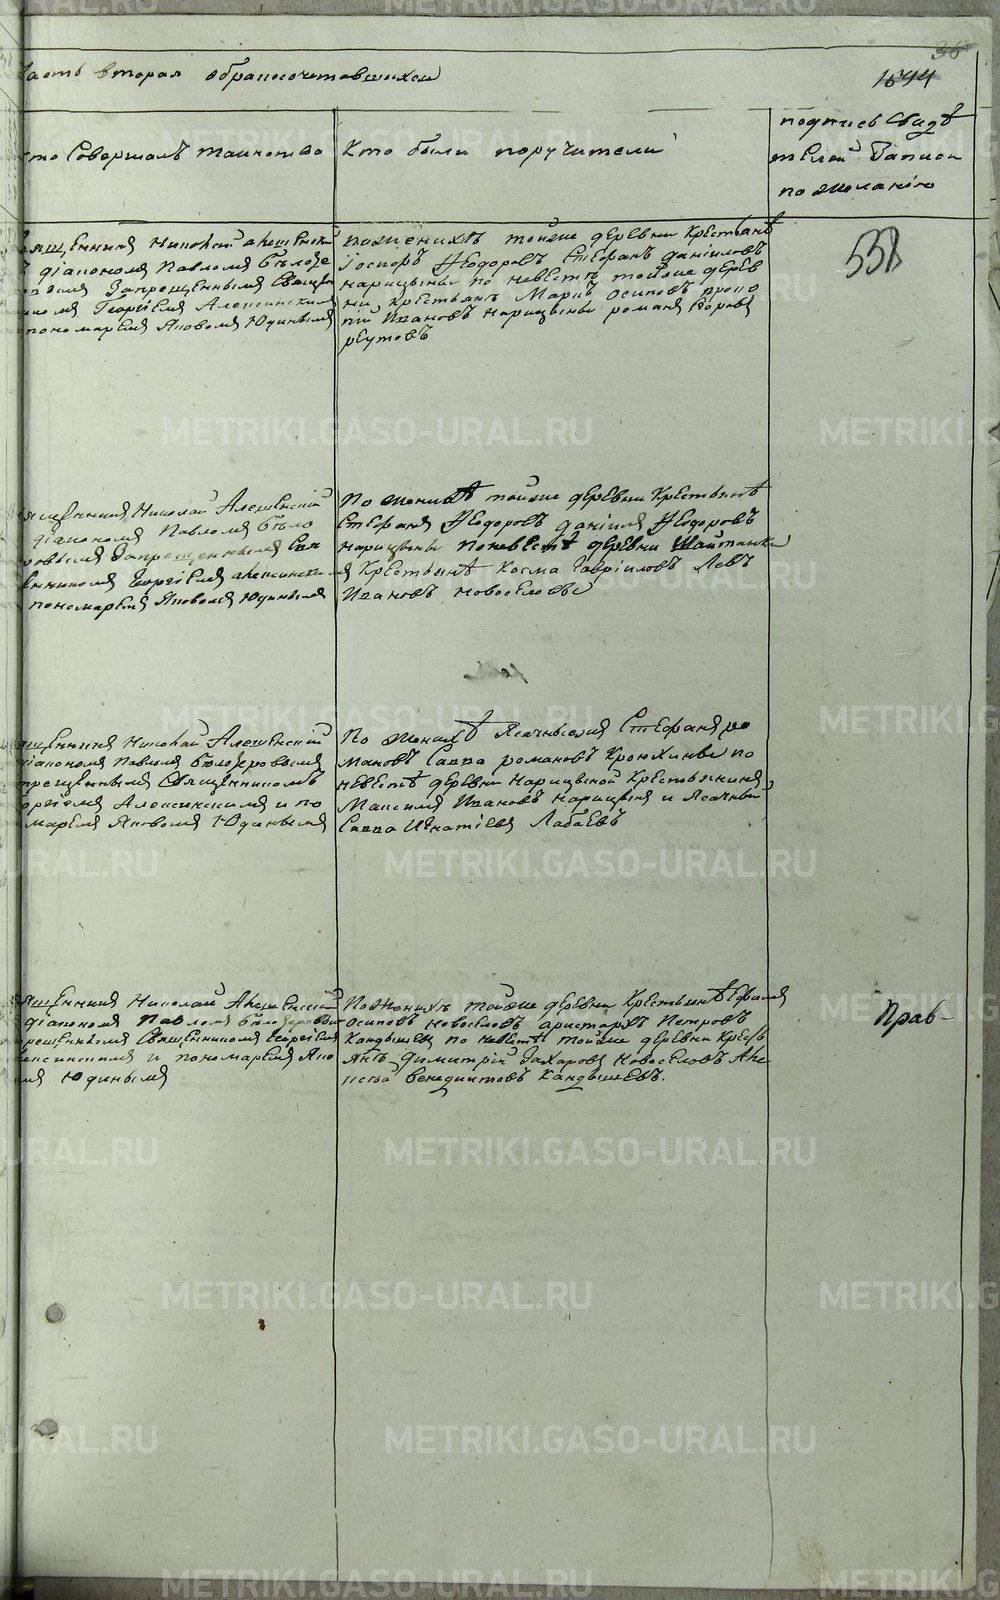 часть вторая обракосочетавшихся
36
1644
кто Совершалъ таинство
Кто были поручители
подписъ Свидѣ
телей Записи
по желанію
558
священникъ Николай Алешенскій
діакономъ Павломъ Бѣлозе
Запрещеннымъ Священ
Георгіемъ Алешинскимъ
пономаремъ Яковомъ Юдинымъ
по женихѣ тойже деревни Крестьянѣ
Ѳедоровъ Стефанъ даніиловъ
нарицыны по невестѣ тойже дерев
ни крестьянѣ Осиповъ
Ивановъ нарицыны романъ
реутовъ
священникъ Николай Алешенскій
діакономъ Павломъ бѣло
ровымъ Запрещеннымъ Свя
щенникомъ Георгіемъ Алешинскимъ
пономаремъ Яковомъ Юдинымъ
По женихѣ тойже деревни Крестьянѣ
Стефанъ Ѳедоровъ даніилъ Ѳедоровъ
нарицыны по невестѣ деревни Шайтанки
Крестьянѣ Косма Гавріиловъ Левъ
Ивановъ новоселовы
священникъ Николай Алешенскій
діакономъ Павломъ бѣлозеровымъ
прещеннымъ Священникомъ
оргіемъ Алешинскимъ и по
маремъ Яковомъ Юдинымъ
По женихѣ Ясачные Стефанъ ро
мановъ Савва романовъ Крюхины по
невестѣ деревни Нарицынской Крестьянинъ
Максимъ Ивановъ нарицынъ и Ясачный
Савва Игнатіевъ Лабаевъ
священникъ Николай Алешенскій
діакономъ Павломъ бѣлозеровы
прещеннымъ Священникомъ Георгіемъ
Алешинскимъ и пономаремъ Яко
мъ Юдинымъ
По женихѣ тойже деревни Крестьянѣ
осиповъ новоселовъ аристархъ Петровъ
Кандышевы по невестѣ тойже деревни крест
янѣ димитрій Захаровъ новоселовъ Але
ксѣй венедиктовъ Кандышевъ.
Прав-
METRIKI.GASO-URAL.RU